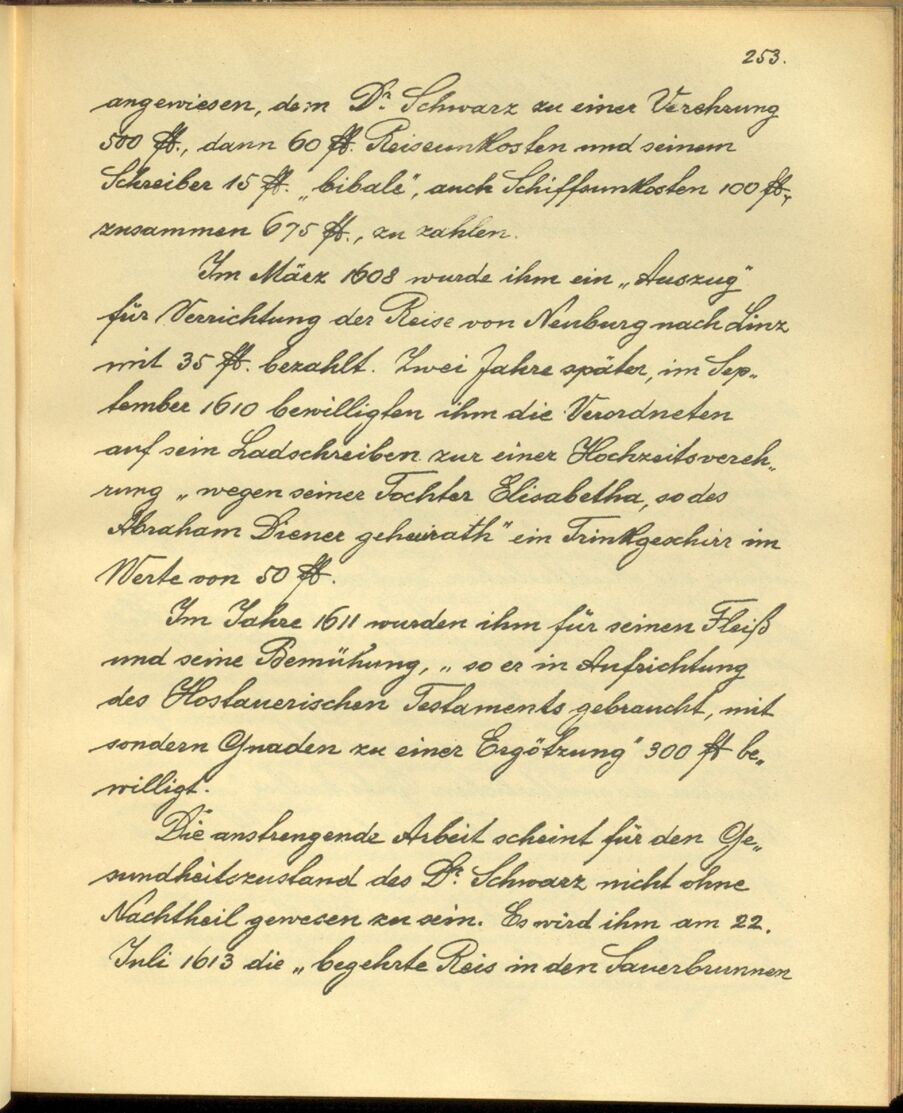 253.
angewiesen, dem Dr. Schwarz zu einer Verehrung
500 fl., dann 60 fl. Reiseunkosten und seinem
Schreiber 15 fl. „bibale", auch Schiffsunkosten 100 fl.,
zusammen 675 fl., zu zahlen.
Im März 1608 wurde ihm ein „Auszug"
für Verrichtung der Reise von Neuburg nach Linz
mit 35 fl. bezahlt. Zwei Jahre später, im Sep„
tember 1610 bewilligten ihm die Verordneten
auf sein Ladschreiben zur einer Hochzeitsvereh„
rung „wegen seiner Tochter Elisabetha, so des
Abraham Diener geheirath" ein Trinkgeschirr im
Werte von 50 fl.
Im Jahre 1611 wurden ihm für seinen Fleiß
und seine Bemühung, „so er in Aufrichtung
des Hostauerischen Testaments gebraucht, mit
sondern Gnaden zu einer Ergötzung" 300 fl be„
willigt.
Die anstrengende Arbeit scheint für den Ge„
sundheitszustand des Dr. Schwarz nicht ohne
Nachtheil gewesen zu sein. Es wird ihm am 22.
Juli 1613 die „begehrte Reis in den Sauerbrunnen